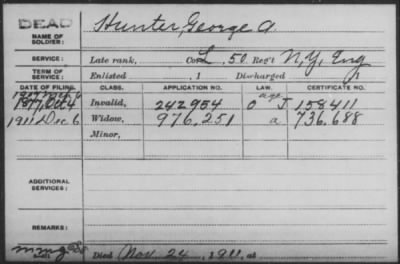 DEAD
NAME OF SOLDIER: Hunter, George A.
SERVICE: Late rank, Co. L. 50. Reg't N.Y. Eng
TERM OF SERVICE: Enlisted , 1 Discharged , 1
DATE OF FILING. CLASS. APPLICATION NO. LAW. CERTIFICATE NO.
1877, Oct 4 Invalid, 242954 O age J 158,411
1911 Dec 6 Widow, 976,251 a 736,688
Minor,
ADDITIONAL SERVICES:
REMARKS:
Died Nov. 24, 1911, at